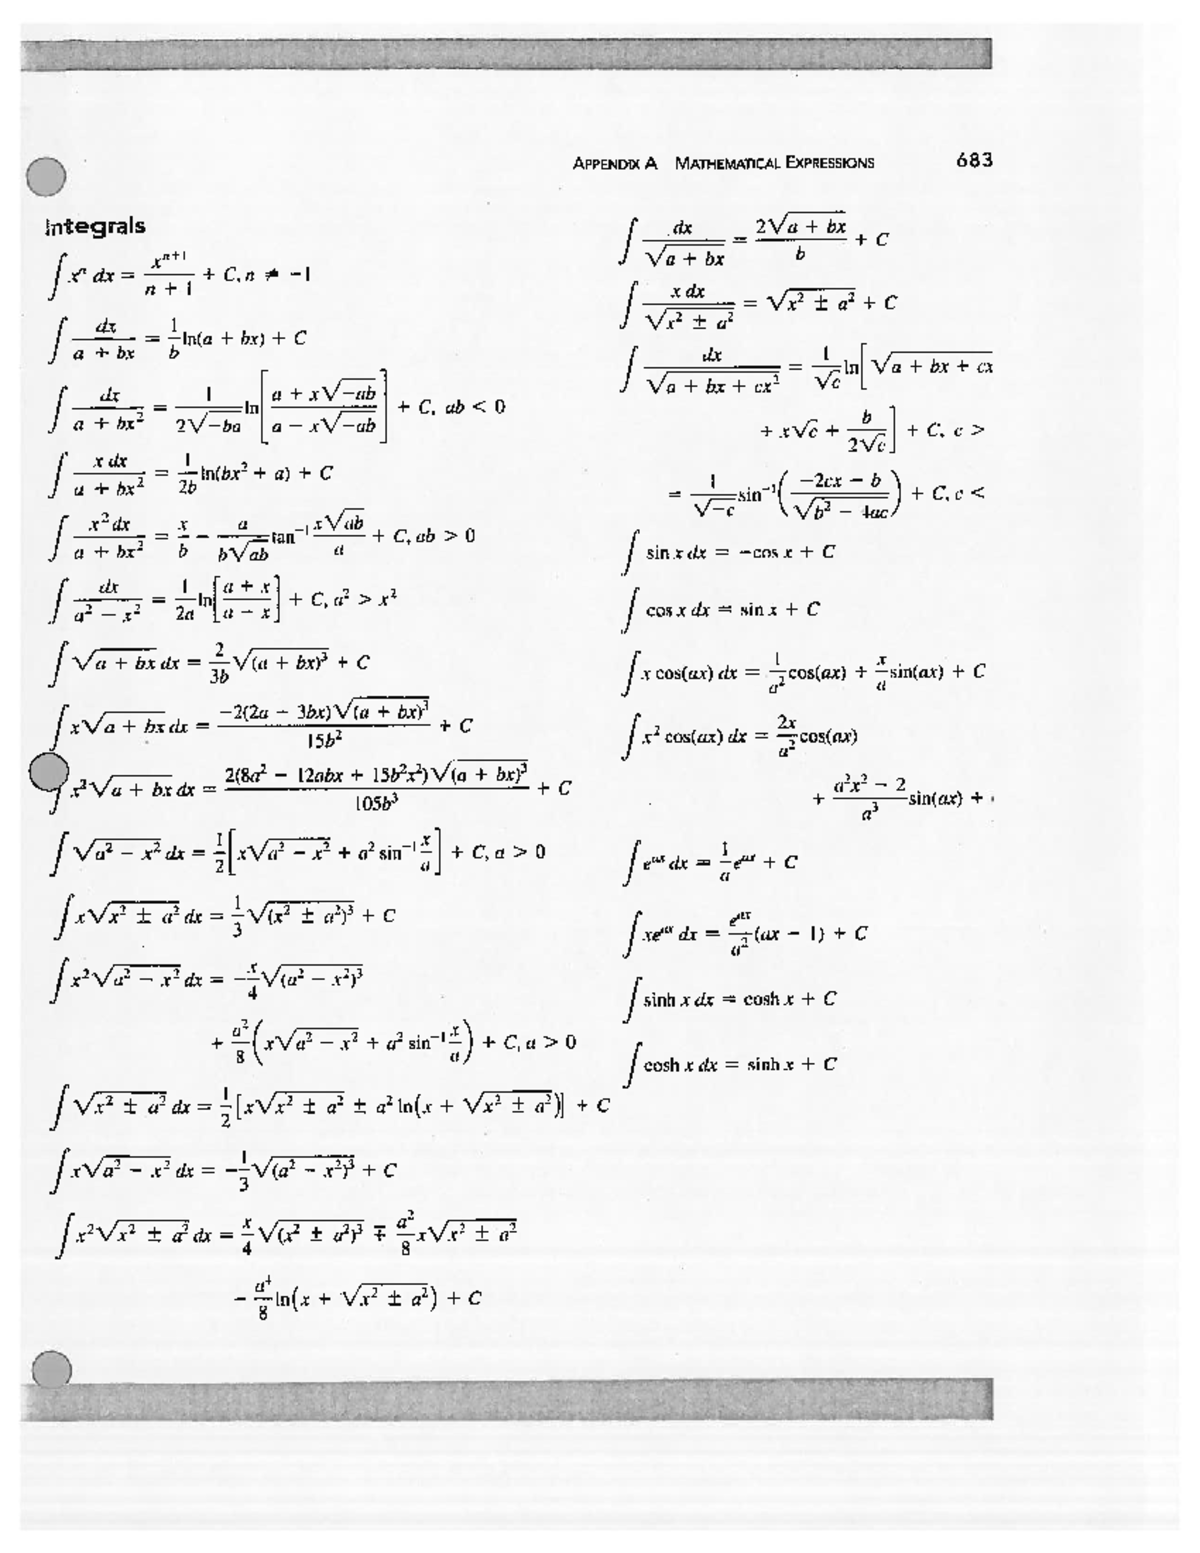 APPENDIX A MATHEMATICAL EXPRESSIONS 683
Integrals
∫ xⁿ dx = xⁿ⁺¹/(n + 1) + C, n ≠ −1
∫ dx/(a + bx) = (1/b) ln(a + bx) + C
∫ dx/(a + bx²) = 1/(2√(−ba)) ln[(a + x√(−ab))/(a − x√(−ab))] + C, ab < 0
∫ x dx/(a + bx²) = (1/2b) ln(bx² + a) + C
∫ x² dx/(a + bx²) = x/b − a/(b√(ab)) tan⁻¹ (x√(ab))/a + C, ab > 0
∫ dx/(a² − x²) = (1/2a) ln[(a + x)/(a − x)] + C, a² > x²
∫ √(a + bx) dx = (2/3b) √((a + bx)³) + C
∫ x√(a + bx) dx = −2(2a − 3bx)√((a + bx)³)/(15b²) + C
∫ x²√(a + bx) dx = 2(8a² − 12abx + 15b²x²)√((a + bx)³)/(105b³) + C
∫ √(a² − x²) dx = (1/2)[x√(a² − x²) + a² sin⁻¹ (x/a)] + C, a > 0
∫ x√(x² ± a²) dx = (1/3)√((x² ± a²)³) + C
∫ x²√(a² − x²) dx = −(x/4)√((a² − x²)³)
+ (a²/8)(x√(a² − x²) + a² sin⁻¹ (x/a)) + C, a > 0
∫ √(x² ± a²) dx = (1/2)[x√(x² ± a²) ± a² ln(x + √(x² ± a²))] + C
∫ x√(a² − x²) dx = −(1/3)√((a² − x²)³) + C
∫ x²√(x² ± a²) dx = (x/4)√((x² ± a²)³) ∓ (a²/8)x√(x² ± a²)
− (a⁴/8) ln(x + √(x² ± a²)) + C
∫ dx/√(a + bx) = 2√(a + bx)/b + C
∫ x dx/√(x² ± a²) = √(x² ± a²) + C
∫ dx/√(a + bx + cx²) = (1/√c) ln[√(a + bx + cx
+ x√c + b/(2√c)] + C, c >
= (1/√(−c)) sin⁻¹((−2cx − b)/√(b² − 4ac)) + C, c <
∫ sin x dx = −cos x + C
∫ cos x dx = sin x + C
∫ x cos(ax) dx = (1/a²) cos(ax) + (x/a) sin(ax) + C
∫ x² cos(ax) dx = (2x/a²) cos(ax)
+ ((a²x² − 2)/a³) sin(ax) +
∫ eᵃˣ dx = (1/a) eᵃˣ + C
∫ xeᵃˣ dx = (eᵃˣ/a²)(ax − 1) + C
∫ sinh x dx = cosh x + C
∫ cosh x dx = sinh x + C